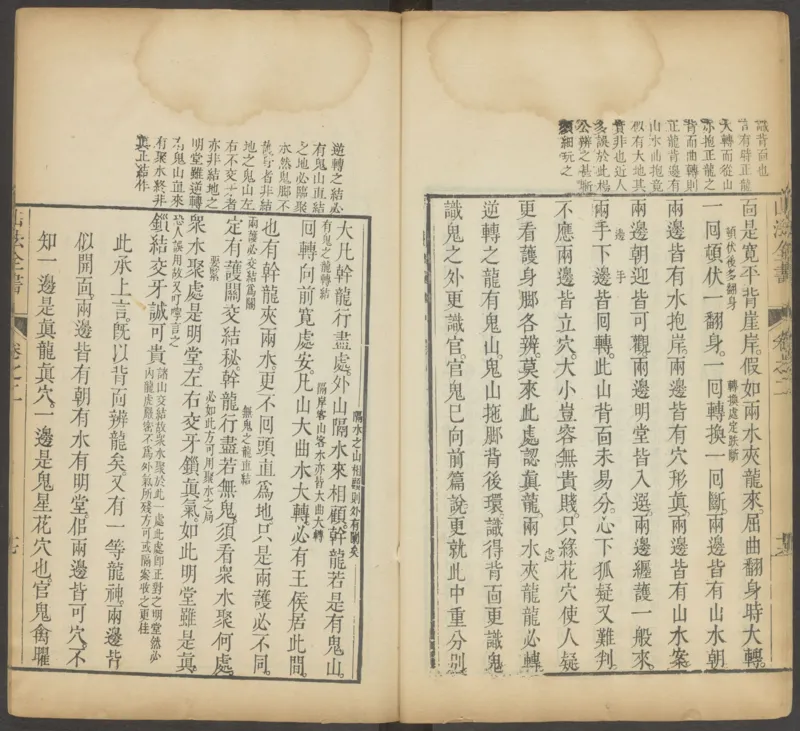 識背面也
言有時正龍
大轉而從山
亦抱正龍之
背而曲轉則
正龍背邊有
山水曲抱竟
似有大地其
實非也近人
多誤於此楊
公辨之甚晰
須細玩之
山法全書
卷之二
面是寬平背崖岸。假如兩水夾龍來。屈曲翻身時大轉。
頓伏後多翻身
轉換處定跌斷
一回頓伏一翻身。一回轉換一回斷。兩邊皆有山水朝
兩邊皆有水抱岸。兩邊皆有穴形真。兩邊皆有山水案
兩邊朝迎皆可觀。兩邊明堂皆入選。兩邊纏護一般來。
邊手
兩手下邊皆回轉。此山背面未易分。心下狐疑又難判。
不應兩邊皆立穴。大小豈容無貴賤。只緣花穴使人疑
更看護身脚各辨。莫來此處認真龍。兩水夾龍龍必轉
逆轉之龍有鬼山。鬼山拖脚背後環。識得背面更識鬼
識鬼之外更識官。官鬼已向前篇說。更就此中重分別
逆轉之結必
有鬼山直結
之地必臨聚
水然鬼脚不
身者非結
地之鬼山左
右不交者
亦非結地之
明堂雖逆轉
有鬼山直來
有聚水終非
真正結作
隔水之山相顧則外有關矣
大凡幹龍行盡處。外山隔水來相顧。幹龍若是有鬼山。
有鬼之龍轉結
隔岸客山客水亦皆大曲大轉
回轉向前寬處安。凡山大曲水大轉。必有王侯居此間。
無鬼之龍直結
也有幹龍夾兩水。更不回頭直爲地。只是兩護必不同。
兩護必交結爲關
定有護關交結秘。幹龍行盡若無鬼。須看衆水聚何處。
要緊
必如此方可用聚水之局
衆水聚處是明堂。左右交牙鎖真氣。如此明堂雖是真。
恐人誤用故又叮嚀言之
鎖結交牙誠可貴
諸山交結故衆水聚於此一處此處即正對之明堂然必
內龍虎嚴密不爲外氣所殘方可或隔案收之更佳
此承上言。旣以背面辨龍矣。又有一等龍神。兩邊皆
似開面。兩邊皆有朝有水有明堂。但兩邊皆可穴。不
知一邊是真龍真穴。一邊是鬼星花穴也。官鬼禽曜
山法全書
卷之二